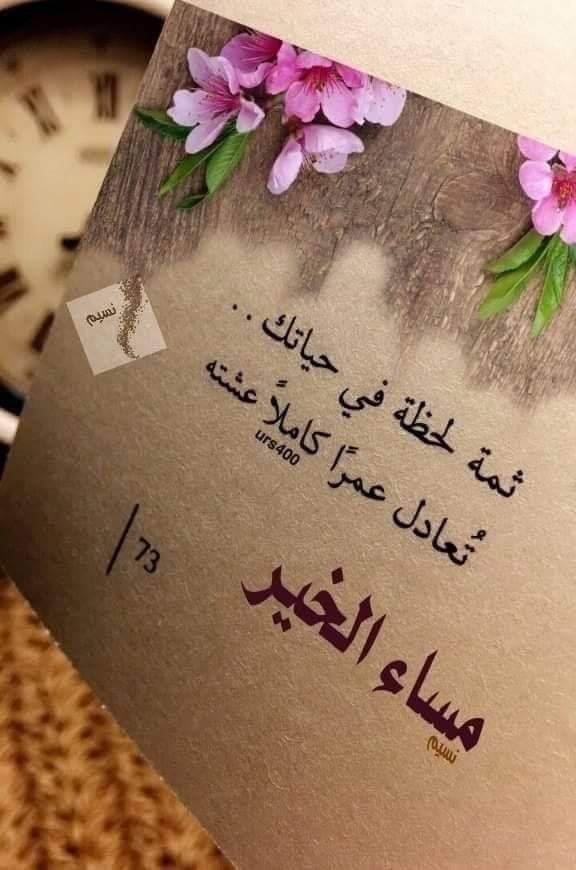 نسيم
ثمة لحظة في حياتك ..
تُعادل عمرًا كاملاً عشته
urs400
73
مساء الخير
نسيم